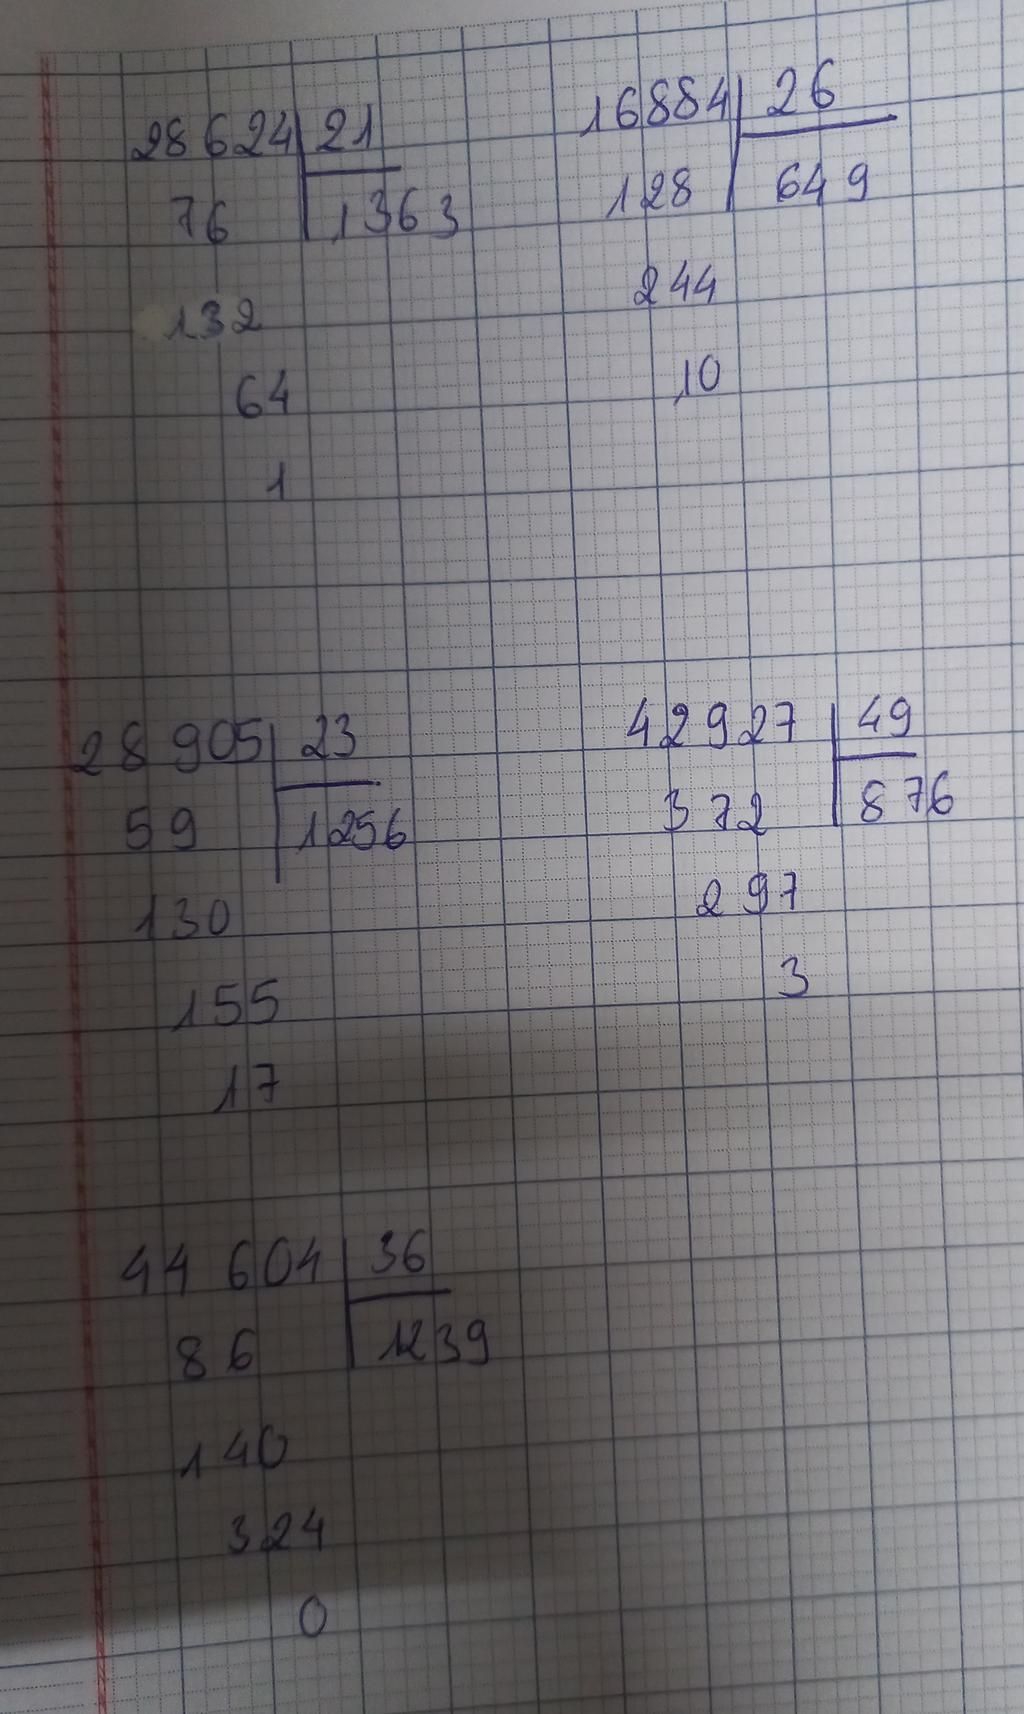 28 624 21
76 1363
132
64
1
16884 26
128 649
244
10
28 905 23
59 1256
130
155
17
42 927 49
372 876
297
3
44 604 36
86 1239
140
324
0